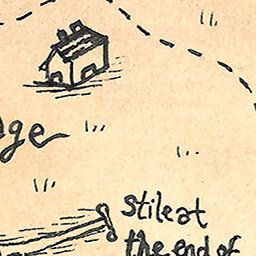 Stile at
the end of